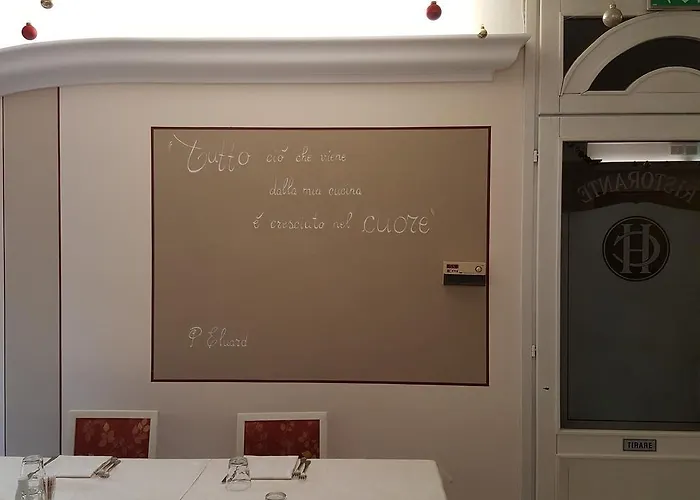 "Tutto ciò che viene
dalla mia cucina
è cresciuto nel CUORE"
P. Eluard
RISTORANTE
TIRARE